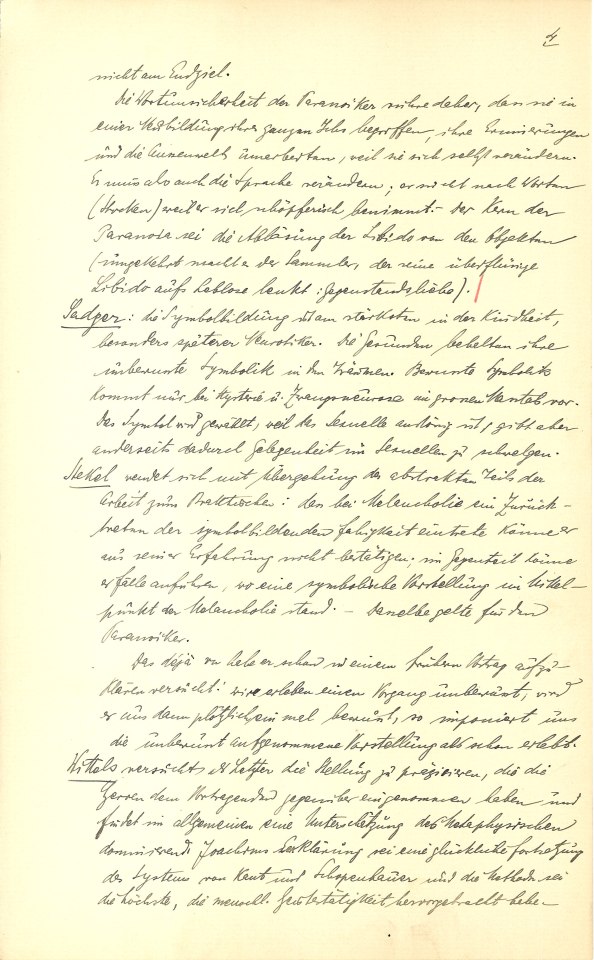 4
nicht am Endziel.
Die Wortunsicherheit der Paranoiker rühre daher, dass sie in
einer Umbildung ihres ganzen Ichs begriffen, ihre Erinnerungen
und die Aussenwelt umarbeiten, weil sie sich selbst verändern.
Er muss also auch die Sprache verändern; er sucht nach Worten
(Stocken) weil er sich schöpferisch benimmt. – Der Kern der
Paranoia sei die Ablösung der Libido von den Objekten
(umgekehrt mache es der Sammler, der seine überflüssige
Libido aufs Leblose lenkt: Gegenstandsliebe).
Sadger: die Symbolbildung ist am stärksten in der Kindheit,
besonders späterer Neurotiker. Die Gesunden behalten ihre
unbewusste Symbolik in den Träumen. Bewusste Symbolik
kommt nur bei Hysterie u. Zwangsneurose in grossem Masstab vor.
Das Symbol wird gewählt, weil das Sexuelle anstössig ist, gibt aber
anderseits dadurch Gelegenheit im Sexuellen zu schwelgen.
Stekel wendet sich mit Übergehung des abstrakten Teils der
Arbeit zum Praktischen: dass bei Melancholie ein Zurück-
treten der symbolbildenden Fähigkeit eintrete könne er
aus seiner Erfahrung nicht bestätigen; im Gegenteil könne
er Fälle anführen, wo eine symbolische Vorstellung im Mittel-
punkt der Melancholie stand. – Dasselbe gelte für den
Paranoiker.
Das déjà vu habe er schon in einem frühern Vortrag aufzu-
klären versucht: wir erleben einen Vorgang unbewusst, wird
er uns dann plötzlich ein mal bewusst, so imponiert uns
die unbewusst aufgenommene Vorstellung als schon erlebt.
Wittels versucht als Letzter die Stellung zu präzisieren, die die
Herren dem Vortragenden gegenüber eingenommen haben und
findet im allgemeinen eine Unterschätzung des Metaphysischen
dominierend. Joachims Erklärung sei eine glückliche Fortsetzung
des Systems von Kant und Schopenhauer und die Methode sei
die höchste, die menschl. Geistestätigkeit hervorgebracht habe.–